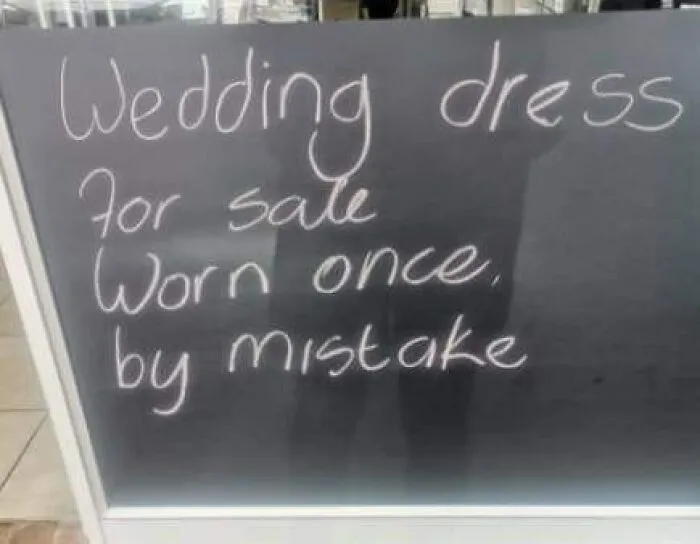 Wedding dress
For sale
Worn once,
by mistake